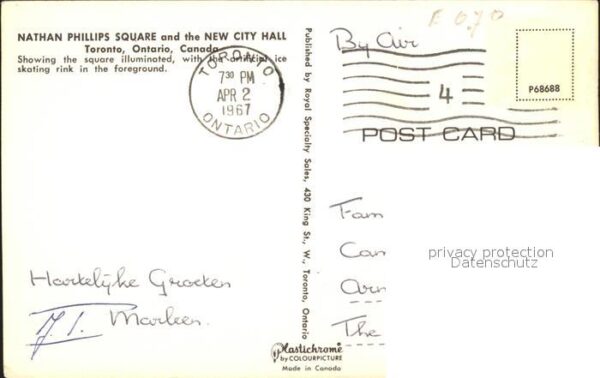 NATHAN PHILLIPS SQUARE and the NEW CITY HALL
Toronto, Ontario, Canada
Showing the square illuminated, with the artificial ice
skating rink in the foreground.
TORONTO
7 30 PM
APR 2
1967
ONTARIO
Hartelijke Groeten
Marleen.
Published by Royal Specialty Sales, 430 King St., W., Toronto, Ontario
Plastichrome®
by COLOURPICTURE
Made in Canada
E 070
By Air
4
P68688
POST CARD
Fam
Can
privacy protection
Datenschutz
Arn
The